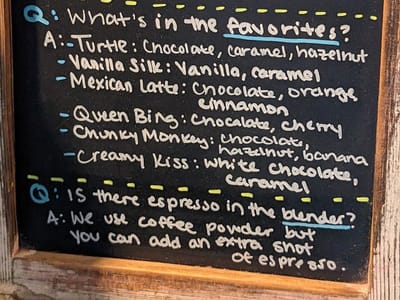 Q: What's in the favorites?
A: - Turtle: Chocolate, caramel, hazelnut
- Vanilla Silk: Vanilla, caramel
- Mexican Latte: Chocolate, orange,
cinnamon
- Queen Bing: Chocolate, cherry
- Chunky Monkey: chocolate,
hazelnut, banana
- Creamy Kiss: white chocolate,
caramel
Q: Is there espresso in the blender?
A: We use coffee powder but
you can add an extra shot
of espresso.